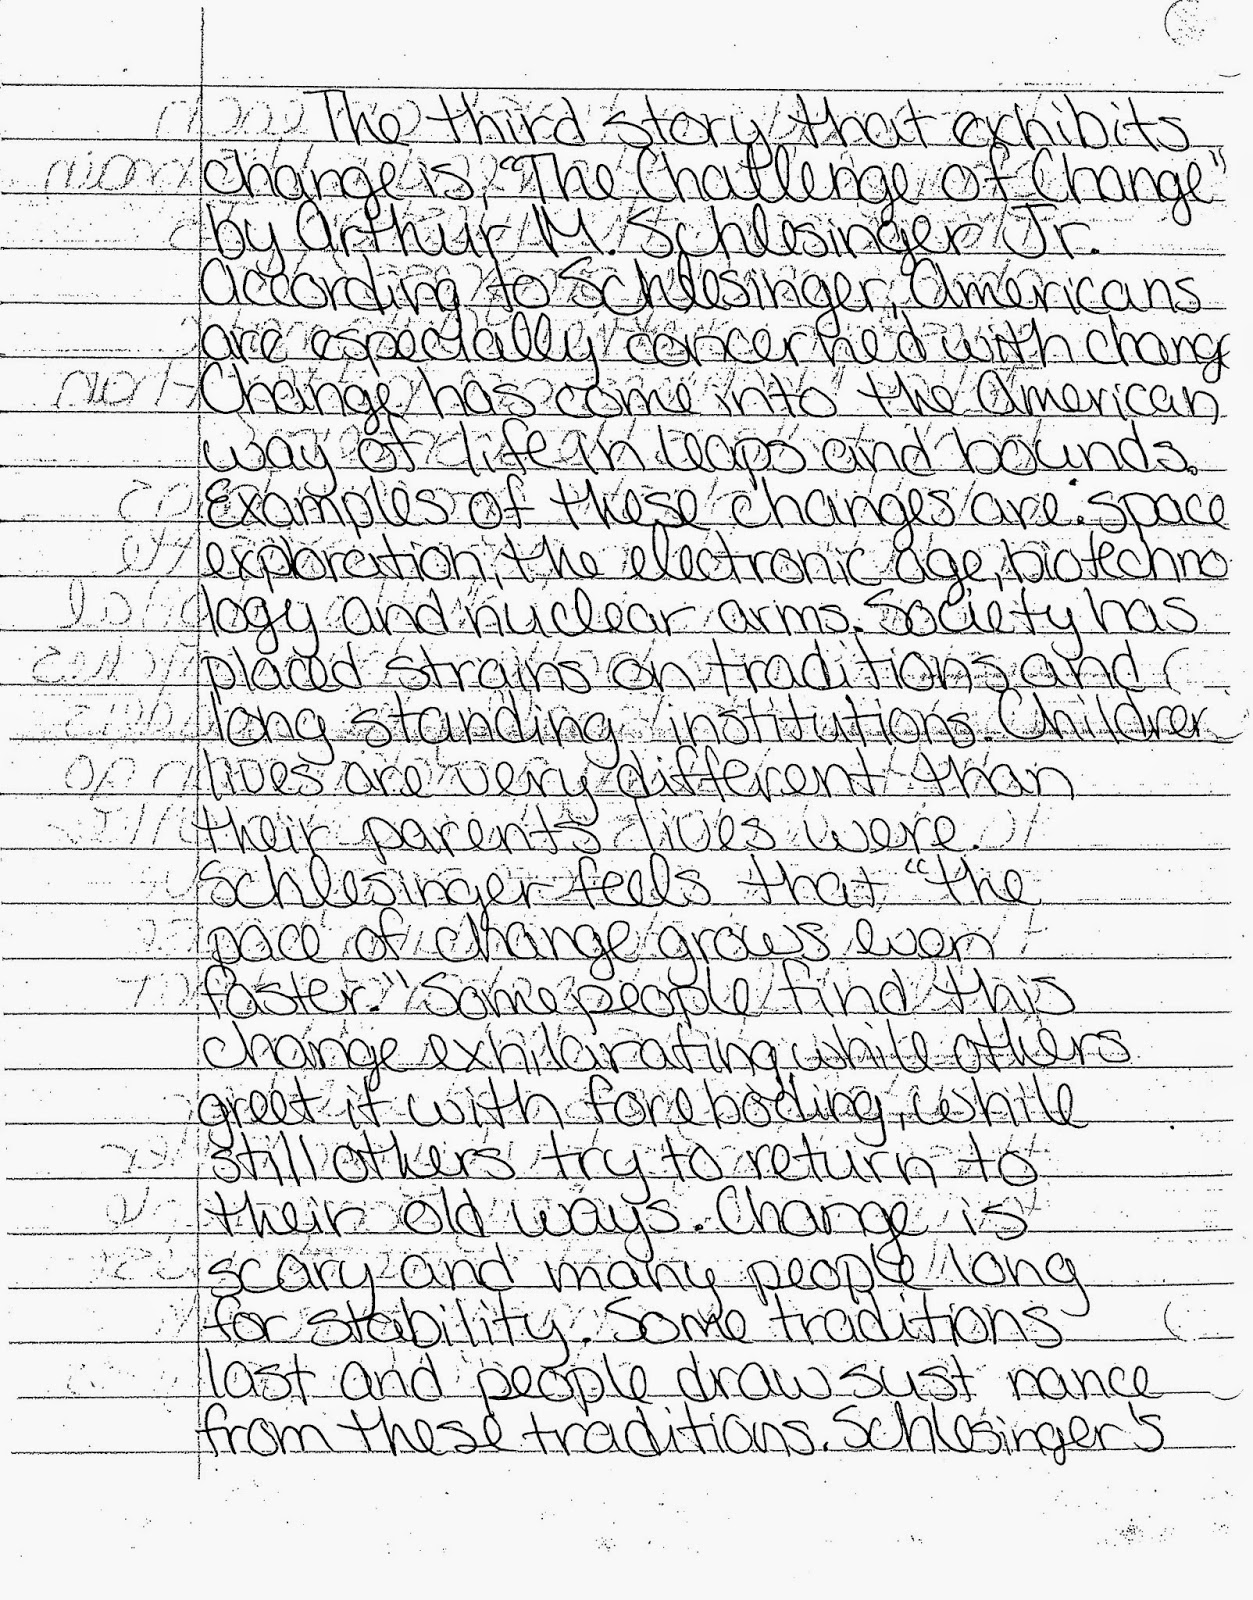 The third story that exhibits
change is, "The Challenge of Change"
by Arthur M. Schlesinger Jr.
According to Schlesinger, Americans
are especially concerned with chang
Change has come into the American
way of life in leaps and bounds.
Examples of these changes are: space
exploration, the electronic age, biotechno
logy and nuclear arms. Society has
placed strains on traditions and
long standing institutions. Children
lives are very different than
their parents lives were.
Schlesinger feels that "the
pace of change grows even
faster." Some people find this
change exhilarating while others
greet it with foreboding, while
still others try to return to
their old ways. Change is
scary and many people long
for stability. Some traditions
last and people draw sust nance
from these traditions. Schlesinger's